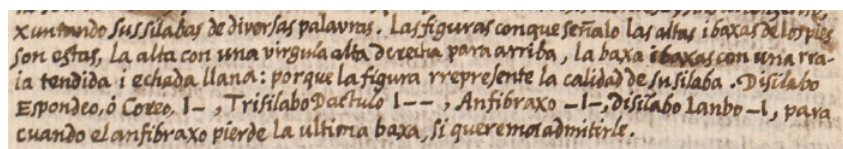 xuntando sus silabas de diversas palavras. Las figuras con que señalo las altas i baxas de los pies
son estas, la alta con una virgula alta derecha para arriba, la baxa i baxas con una rra-
ia tendida i echada llana: porque la figura rrepresente la calidad de su silaba. Disilabo
Espondeo, ó Coreo, I–, Trisilabo Dactulo I––, Anfibraxo –I–, disilabo Ianbo –I, para
cuando el anfibraxo pierde la ultima baxa, si queremos admitirle.